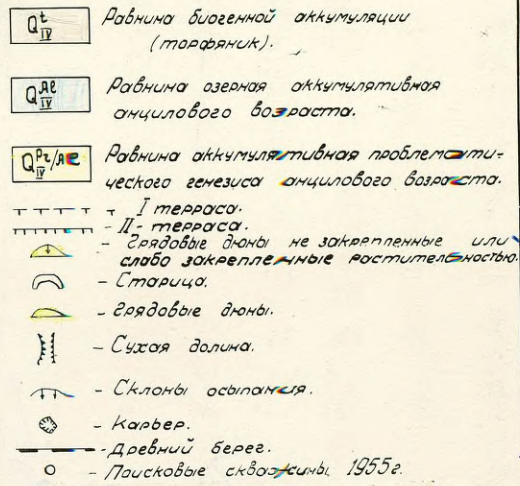 Q t IV Равнина биогенной аккумуляции
(торфяник).
Q Al IV Равнина озерная аккумулятивная
анцилового возраста.
Q Pr IV /Al Равнина аккумулятивная проблемати-
ческого генезиса анцилового возраста.
I терраса.
- II - терраса.
- Грядовые дюны не закрепленные или
слабо закрепленные растительностью.
- Старица.
- Грядовые дюны.
- Сухая долина.
- Склоны осыпания.
- Карьер.
- Древний берег.
- Поисковые скважины 1955г.